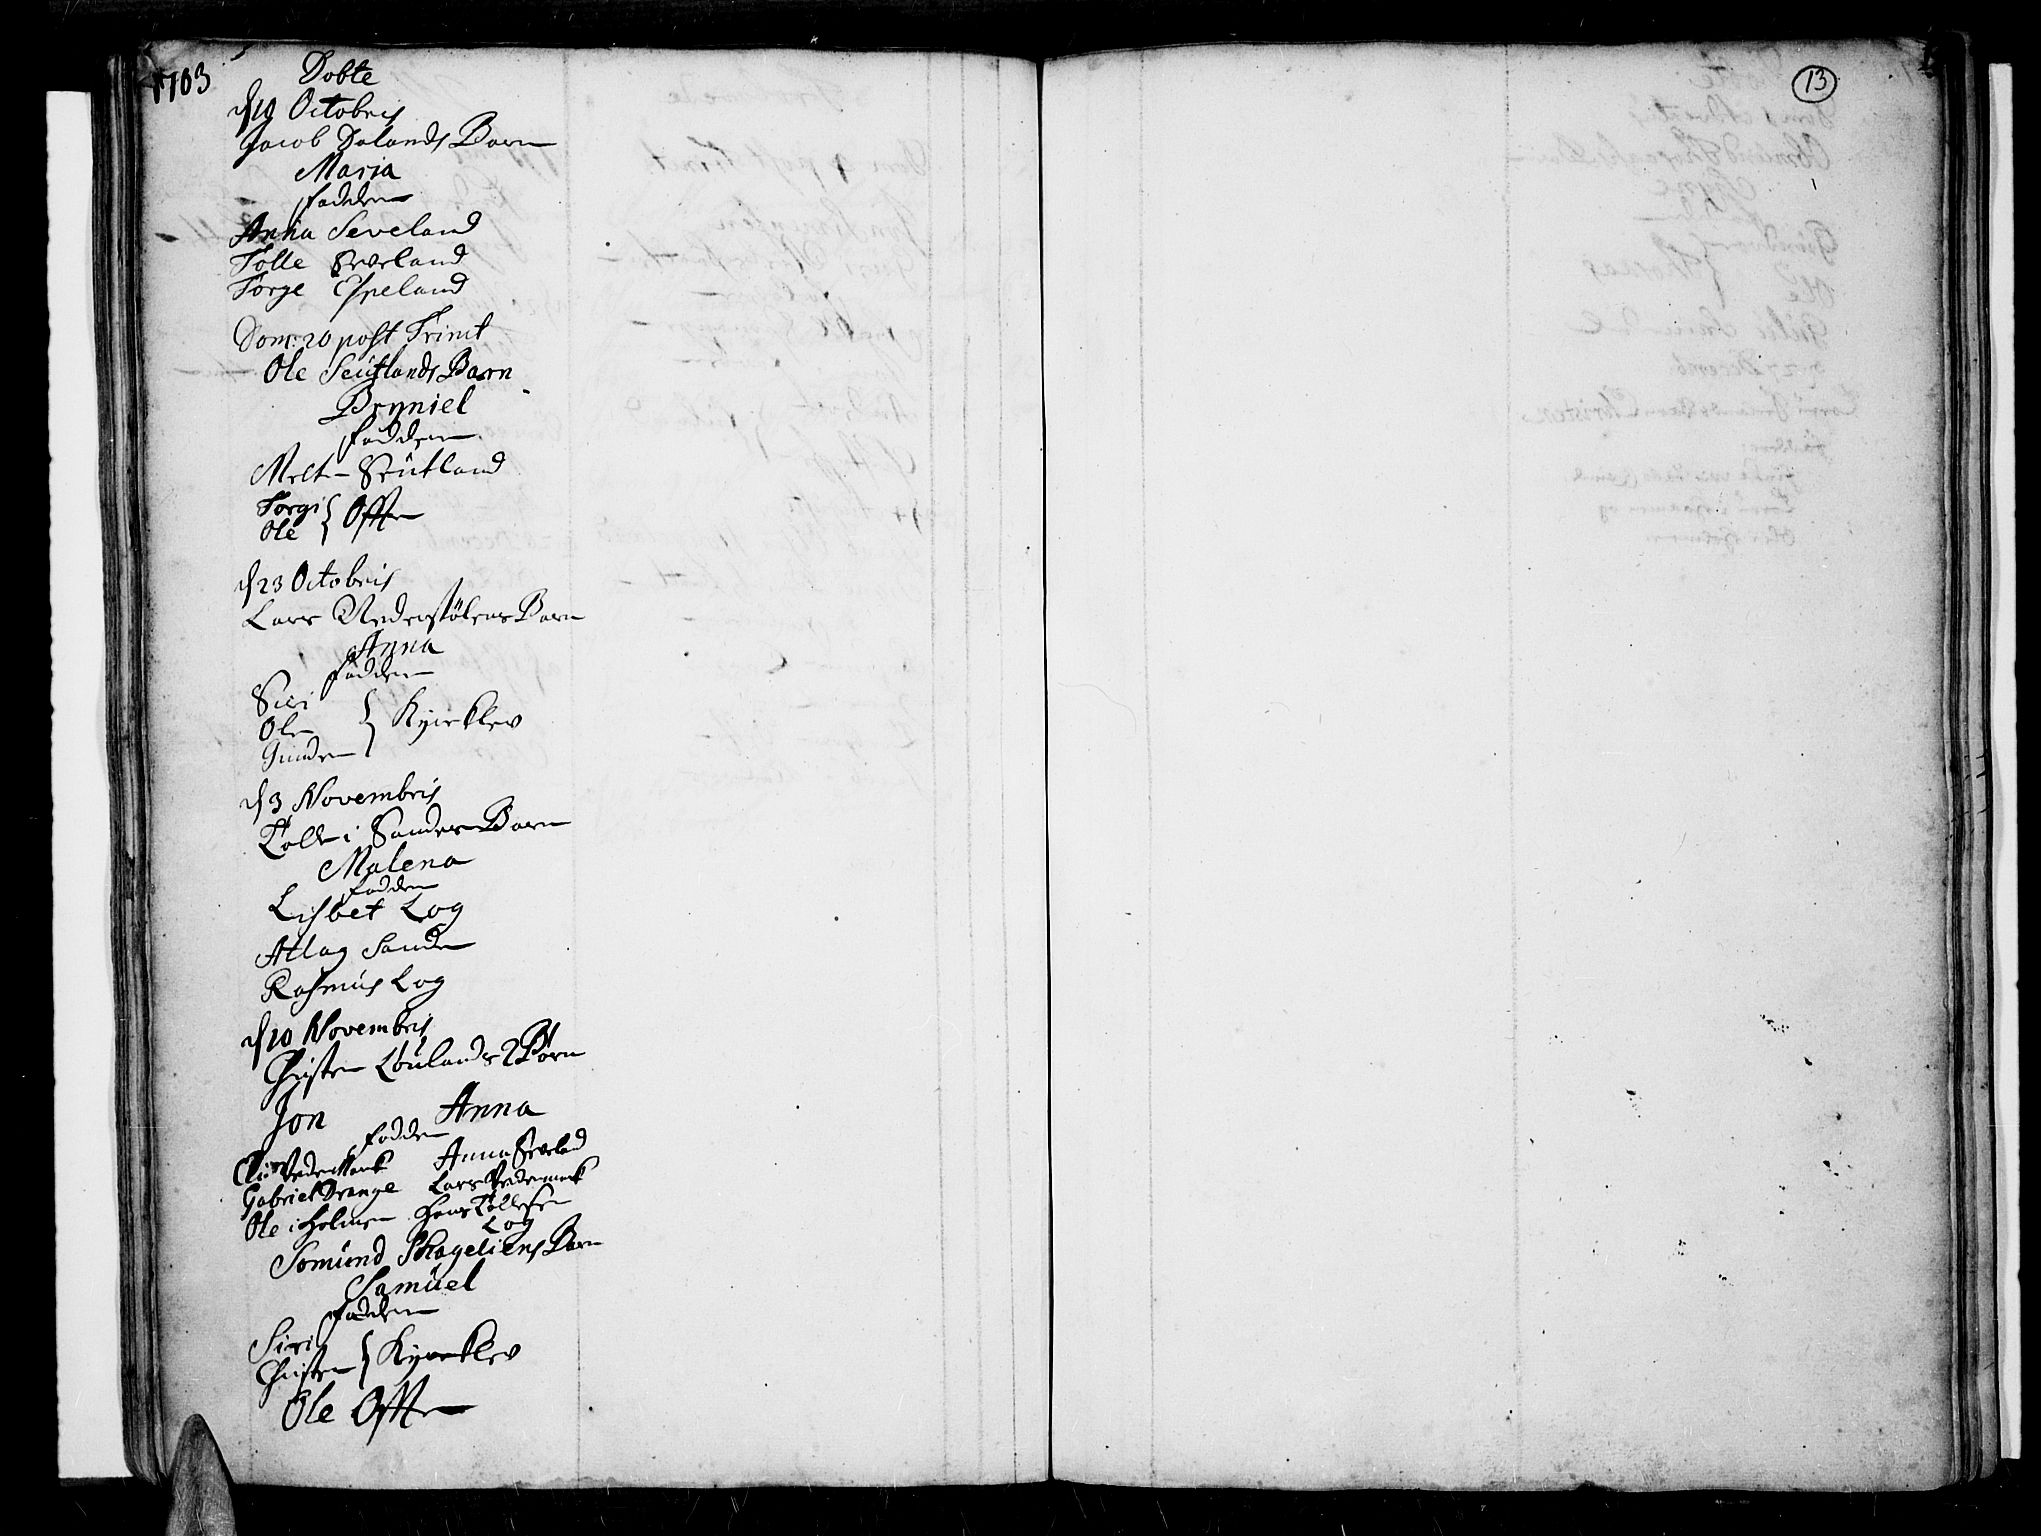 1703
Døbte
d 19 Octobris
Jacob Dalands Barn
Maria
fadder
Anna Seveland
Tolle Seveland
Torge Espeland
Dom: 20 post Trinit
Ole Seütlands Barn
Brynniel
fadder
Melt Seütland
Torgi
Ole } Often
d 23 Octobris
Lars Nederstølens Barn
Anna
fadder
Siri
Ole } Kyireklev
Gunder
d 3 Novembris
Tolle i Sanders Barn
Malena
fadder
Lisbet Log
Atlag Sande
Rasmus Log
d 10 Novembris
Christen Lóulands 2 Børn
Jon Anna
fadder
Anna Seveland
Gabriel Drange Lars Vedenmark
Ole i Holmen Hans Tollefsen
Log
Somünd Skageliens Barn
Samüel
fadder
Siri
Christen } Kyireklev
Ole Often
13